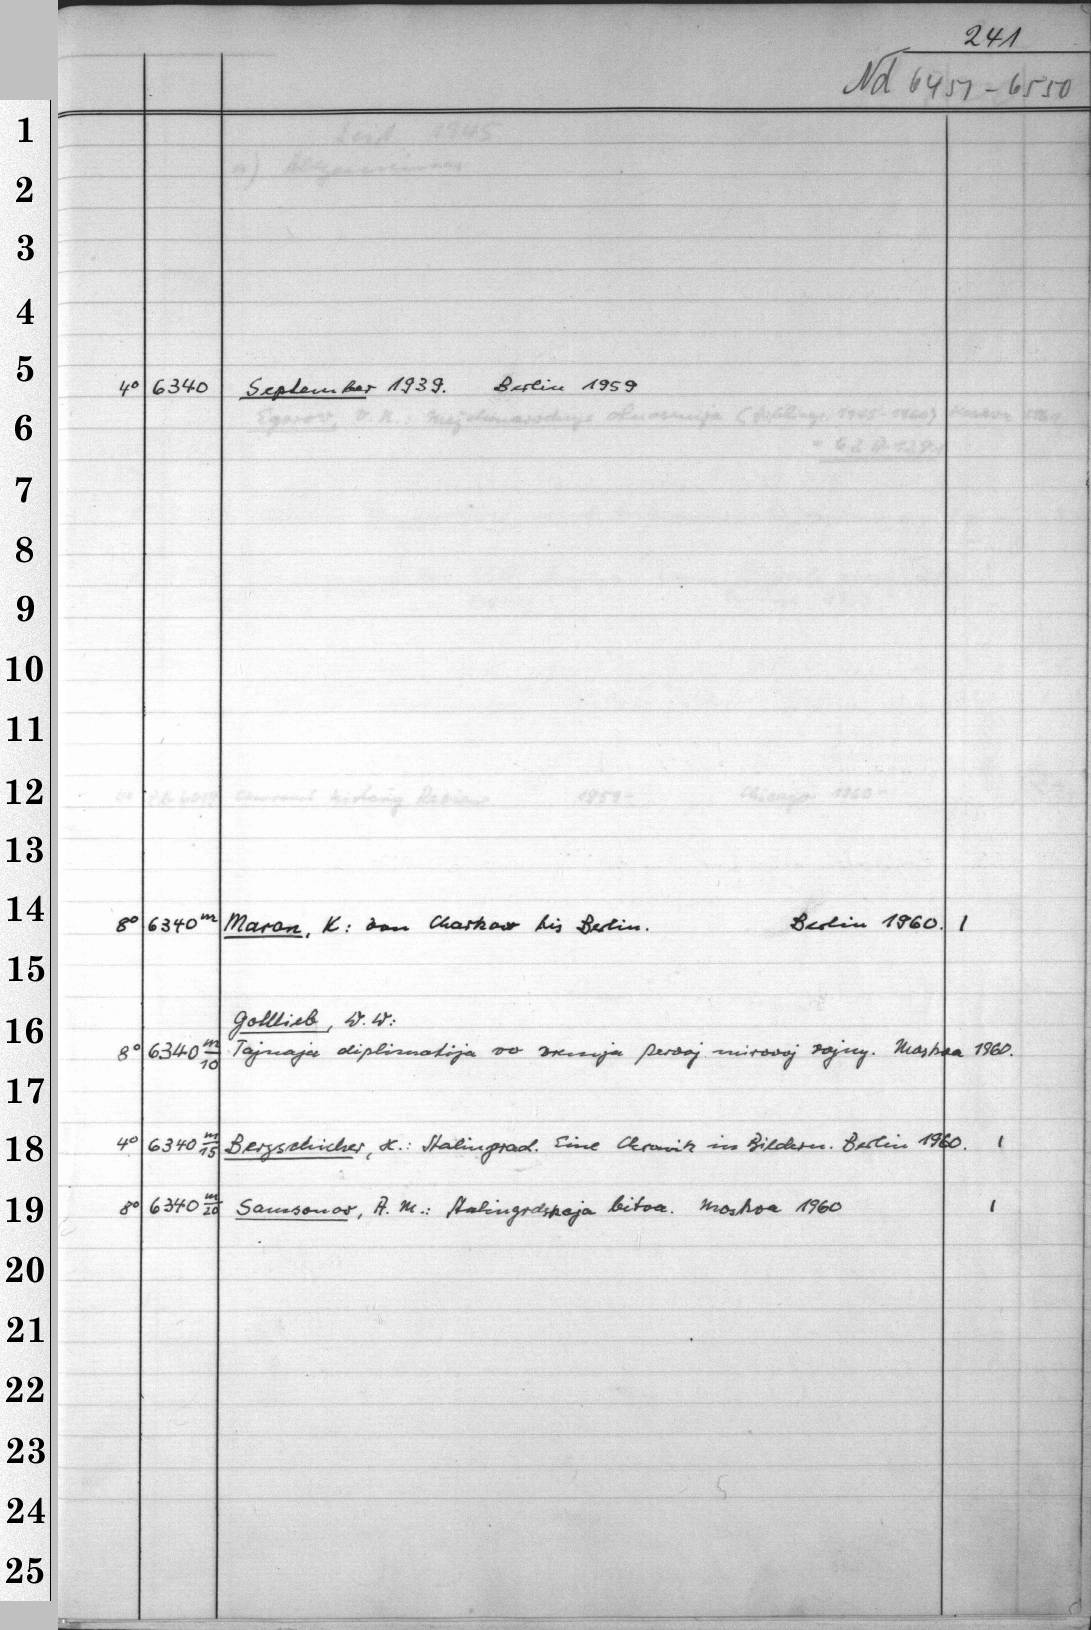 241
Nd 6451-6550
1
2
3
4
5
4° 6340 September 1939. Berlin 1959
6
7
8
9
10
11
12
13
14
8° 6340 m Maron, K: von Charkow bis Berlin. Berlin 1960. 1
15
16
Gottlieb, W. W:
8° 6340 m/10 Tajnaja diplimatija vo vremja pervoj mirovoj vojny. Moskva 1960.
17
18
4° 6340 m/15 Bergschicker, H.: Stalingrad. Eine Chronik in Bildern. Berlin 1960. 1
19
8° 6340 m/20 Samsonov, A. M.: Stalingrdskaja bitva. Moskva 1960 1
20
21
22
23
24
25